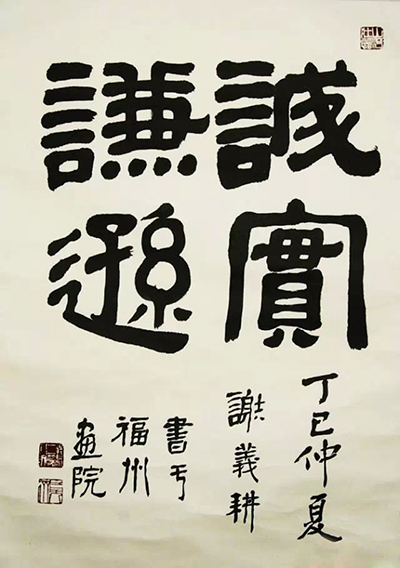 誠實
謙遜
丁巳仲夏
謝義耕
書于
福州
畫院